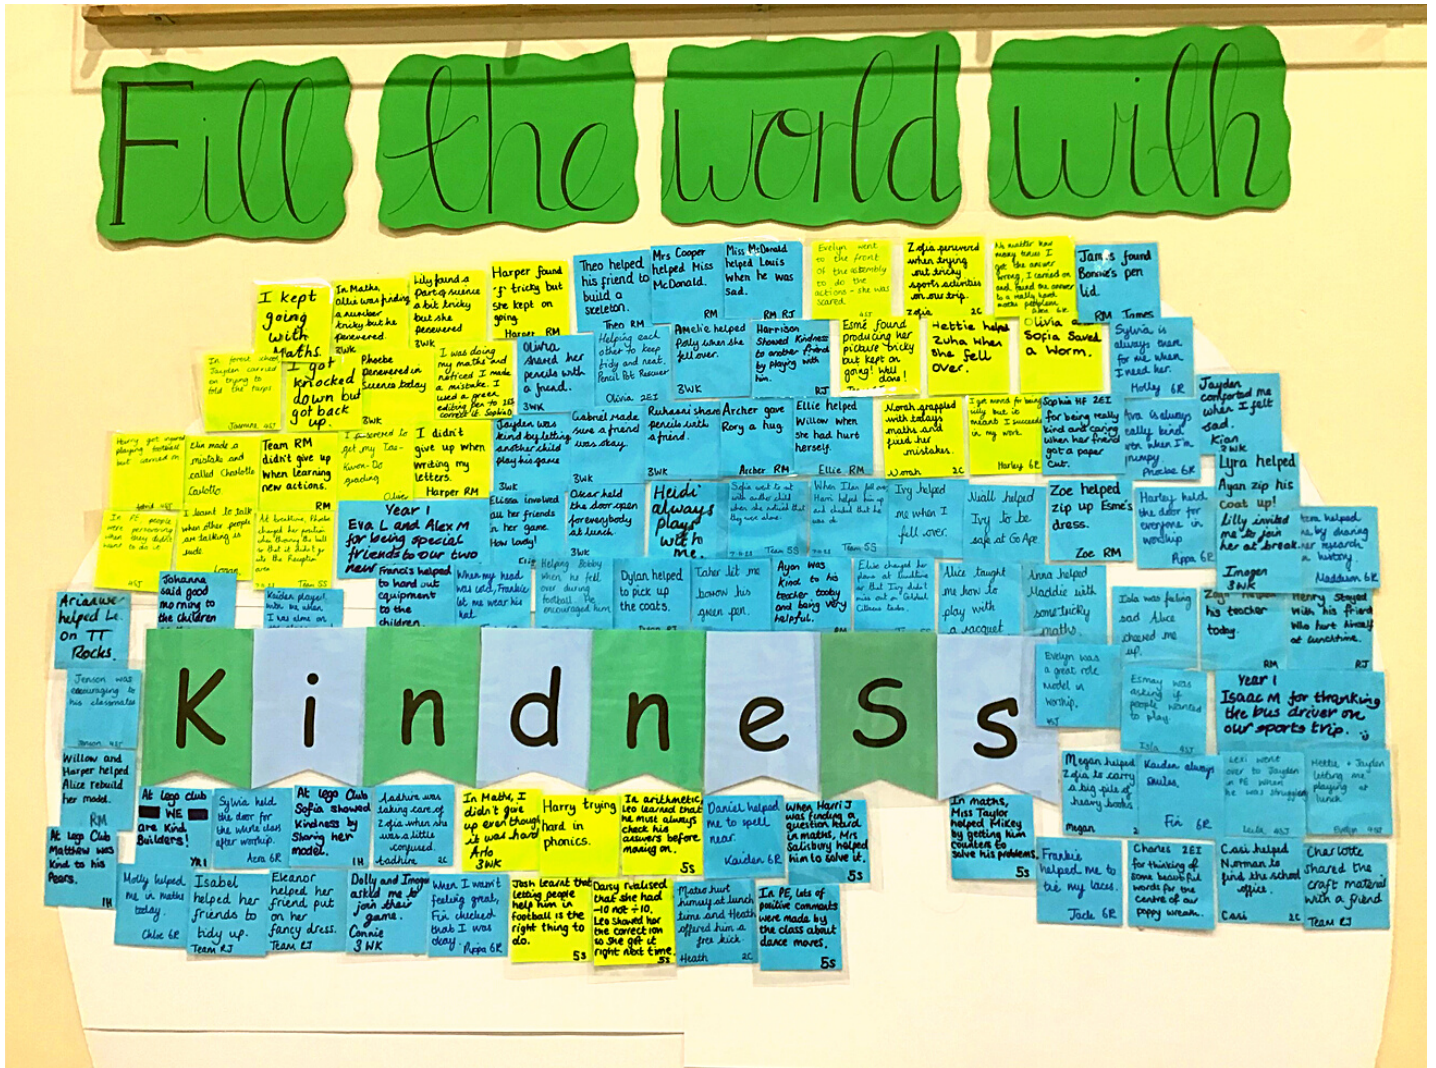 Fill the world with
I kept
going
with
Maths.
In Maths,
Ollie was finding
a number
tricky but he
persevered.
3WK
Lily found a
part of science
a bit tricky
but she
persevered
3WK
Harper found
'f' tricky but
she kept on
going.
Harper RM
Theo helped
his friend to
build a
skeleton.
Theo RM
Mrs Cooper
helped Miss
McDonald.
RM
Miss McDonald
helped Louis
when he was
sad.
RM
Evelyn went
to the front
of the assembly
to do the
actions - she was
scared.
4ST
Zofia persevered
when trying
out tricky
sports activities
on our trip.
Zofia 2C
No matter how
many times I
got the answer
wrong, I carried on
and found the answer
to a really hard
maths problem.
6R
James found
Bonnie's pen
lid.
RM James
In forest school
Jayden carried
on trying to
fold the tarps
Jasmine 4ST
I got
knocked
down but
got back
up.
Phoebe
persevered in
science today
3WK
I was doing
my maths and
noticed I made
a mistake. I
used a green
editing pen to
correct it. Sophia
Olivia
shared her
pencils with
a friend.
3WK
Helping each
other to keep
tidy and neat.
Pencil Pot Rescuer
Olivia 2EI
Amelie helped
Polly when she
fell over.
3WK
Harrison
showed kindness
to another friend
by playing with
him.
RJ
Esmé found
producing her
picture tricky
but kept on
going! Well
done!
Hettie helped
Zuha when
she fell
over.
Olivia
Sofia saved
a worm.
Sylvia is
always there
for me when
I need her.
Holley 6R
Jayden
comforted me
when I felt
sad.
Kian
3WK
Harry got injured
playing football
but carried on
4ST
Ella made a
mistake and
called Charlotte
Carlotte
Team RM
didn't give up
when learning
new actions.
RM
I persevered to
get my Tae-
Kwon-Do
grading
I didn't
give up when
writing my
letters.
Harper RM
Jayden was
kind by letting
another child
play his game
3WK
Gabriel made
sure a friend
was okay.
3WK
Rukhsani share
pencils with
a friend.
3WK
Archer gave
Rory a hug.
Archer RM
Ellie helped
Willow when
she had hurt
herself.
Ellie RM
Norah grappled
with todays
maths and
fixed her
mistakes.
Norah 2C
I got moved for being
silly but it
meant I succeeded
in my work.
Harley 6R
Sophia HF 2EI
for being really
kind and caring
when her friend
got a paper
cut.
Ava is always
really kind
even when I'm
grumpy
Phoebe 6R
Lyra helped
Ayan zip his
coat up!
In PE people
were persevering
when they didn't
want to do it
4ST
I learnt to talk
when other people
are talking is
rude.
Logan
At breaktime, Phoebe
changed her position
when throwing the ball
so that it didn't go
into the Reception
area
Team 5S
Year 1
Eva L and Alex M
for being special
friends to our two
new
Elissa involved
all her friends
in her game.
How lovely!
Oscar held
the door open
for everybody
at lunch.
3WK
Heidi
always
plays
with
me.
Sofia went to sit
with another child
when she noticed that
they were alone.
Team 5S
When Isla fell over
Harri helped him up
and checked that he was
ok
Team 5S
Ivy helped
me when I
fell over.
Niall helped
Ivy to be
safe at Go Ape
Zoe helped
zip up Esme's
dress.
Zoe RM
Harley held
the door for
everyone in
worship
Pippa 6R
Lilly invited
me to join
her at break.
Imogen
3WK
helped
by sharing
her research
in history
Maddison 6R
Arianwe
helped
on TT
Rocks.
Johanna
said good
morning to
the children
Kaiden played
with me when
I was alone on
Francis helped
to hand out
equipment
to the
children.
When my head
was cold, Frankie
let me wear his
hat
Helping Bobby
when he fell
over during
football. He
encouraged him
Dylan helped
to pick up
the coats.
Taher lit me
borrow his
green pen.
Ayan was
kind to his
teacher today
and being very
helpful.
RM
Ellie changed her
plans at lunchtime
so that Ivy didn't
miss out on Global
Citizens tasks.
Alice taught
me how to
play with
a racquet
Anna helped
Maddie with
some tricky
maths.
Isla was feeling
sad. Alice
cheered me
up.
his teacher
today.
RM
Henry stayed
with his friend
who hurt himself
at lunchtime.
RJ
Kindness
Jenson was
encouraging to
his classmates
Jenson 4ST
Evelyn was
a great role
model in
worship.
4ST
Esmay was
asking if
people wanted
to play.
Isla 4ST
Year 1
Isaac M for thanking
the bus driver on
our sports trip.
Willow and
Harper helped
Alice rebuild
her model.
RM
At Lego club
WE
are Kind
Builders!
YR1
Sylvia held
the door for
the whole class
after worship.
Acra 6R
At Lego Club
Sofia showed
kindness by
sharing her
model.
1H
Aadhira was
taking care of
Zofia when she
was a little
confused.
Aadhira 2C
In Maths, I
didn't give
up even though
it was hard
Arlo
3WK
Harry trying
hard in
phonics.
In arithmetic,
Leo learned that
he must always
check his
answers before
moving on.
5S
Daniel helped
me to spell
near.
Kaiden 6R
When Harri J
was finding a
question hard
in maths, Mrs
Salisbury helped
him to solve it.
5S
In maths,
Miss Taylor
helped Mikey
by getting him
counters to
solve his problems.
5S
Megan helped
Zofia to carry
a big pile of
heavy books
Megan 2
Kaiden always
smiles.
Fin 6R
Lexi went
over to Jayden
in PE when
he was struggling
Leila 4ST
Hettie + Jayden
letting me
playing at
lunch
Evelyn 4ST
At Lego Club
Matthew was
kind to his
Peers.
1H
Molly helped
me in maths
today.
Chloe 6R
Isabel
helped her
friends to
tidy up.
Team RJ
Eleanor
helped her
friend put
on her
fancy dress.
Team RJ
Dolly and Imogen
asked me to
join their
game.
Connie
3WK
When I wasn't
feeling great,
Fin checked
that I was
okay.
Pippa 6R
Josh learnt that
letting people
help him in
football is the
right thing to
do.
5S
Daisy realised
that she had
-10 not ÷10.
Leo showed her
the correct ion
so she got it
right next time.
5S
Mateo hurt
himself at lunch
time and Heath
offered him a
free kick.
Heath 2C
In PE, lots of
positive comments
were made by
the class about
dance moves.
5S
Frankie
helped me to
tie my laces.
Jack 6R
Charles 2EI
for thinking of
some beautiful
words for the
centre of our
poppy wreath.
Casi helped
Norman to
find the school
office.
Casi 2C
Charlotte
shared the
craft material
with a friend
Team RJ